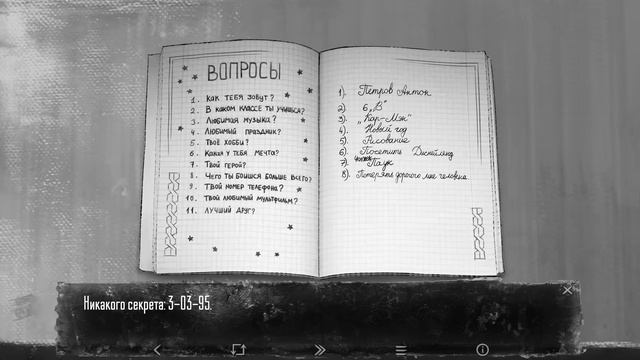 ВОПРОСЫ
1. КАК ТЕБЯ ЗОВУТ?
2. В КАКОМ КЛАССЕ ТЫ УЧИШЬСЯ?
3. ЛЮБИМАЯ МУЗЫКА?
4. ЛЮБИМЫЙ ПРАЗДНИК?
5. ТВОЁ ХОББИ?
6. КАКАЯ У ТЕБЯ МЕЧТА?
7. ТВОЙ ГЕРОЙ?
8. ЧЕГО ТЫ БОИШСЯ БОЛЬШЕ ВСЕГО?
9. ТВОЙ НОМЕР ТЕЛЕФОНА?
10. ТВОЙ ЛЮБИМЫЙ МУЛЬТФИЛЬМ?
11. ЛУЧШИЙ ДРУГ?
1). Петров Антон
2) 6 „В"
3). „Кар-Мэн"
4). Новый год
5). Рисование
6). Посетить Диснейленд
7). Человек Паук
8). Потерять дорогого мне человека
Никакого секрета: 3-03-95.